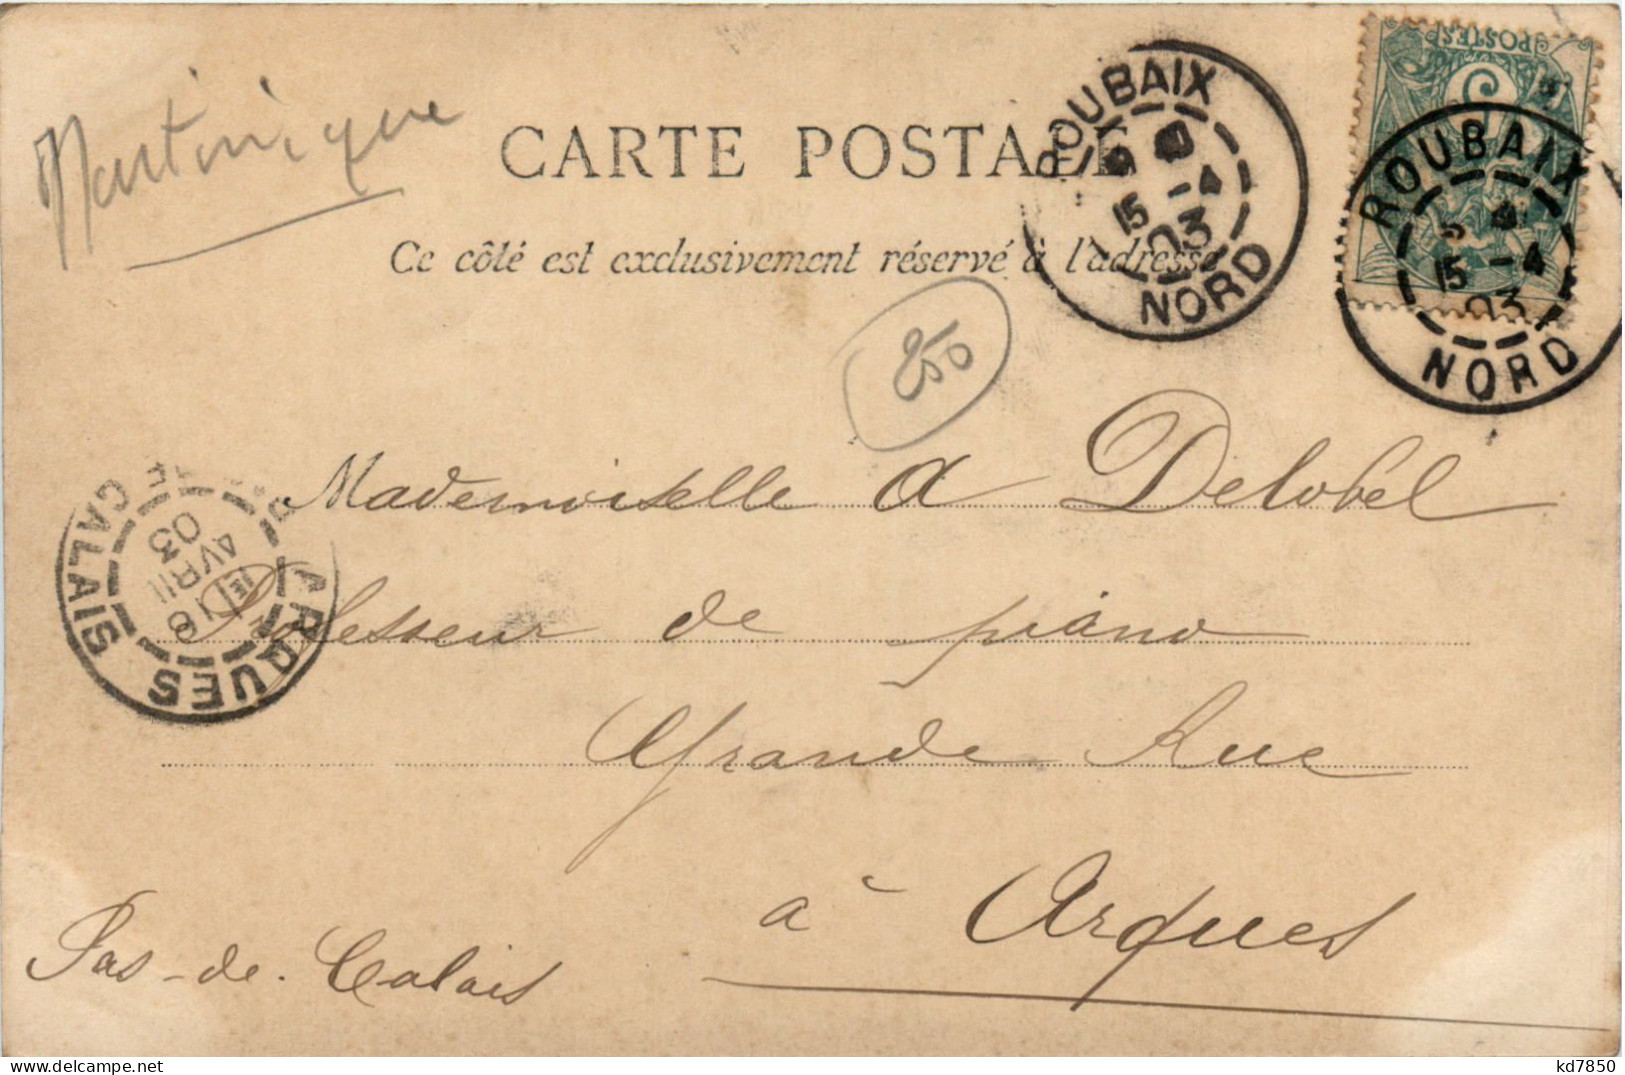 Martinique
CARTE POSTALE
Ce côté est exclusivement réservé à l'adresse
250
ROUBAIX
15 -4
03
NORD
POSTES
5
ROUBAIX
15 -4
03
NORD
Mademoiselle A Delobel
Professeur de piano
Grande Rue
à Arques
Pas-de-Calais
ARQUES
CALAIS
16
AVRIL
03
kd7850